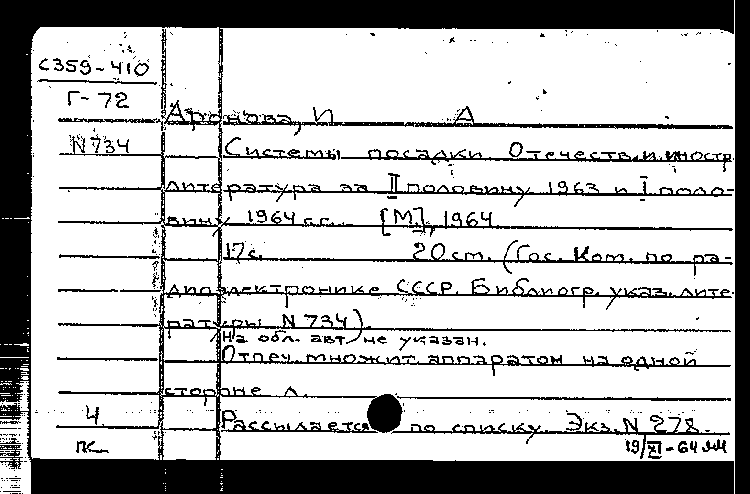 С359-410
Г-72
Аронова, И А
N734
Системы посадки. Отечеств. и иностр.
литература за II половину 1963 и I поло-
вину 1964 г.г. [М], 1964
17с. 20см. (Гос. Ком. по ра-
диоэлектронике СССР. Библиогр. указ. лите-
ратуры N734).
На обл. авт. не указан.
Отпеч. множит. аппаратом на одной
стороне л.
4 Рассылается по списку. Экз. N 278.
19/XI-64